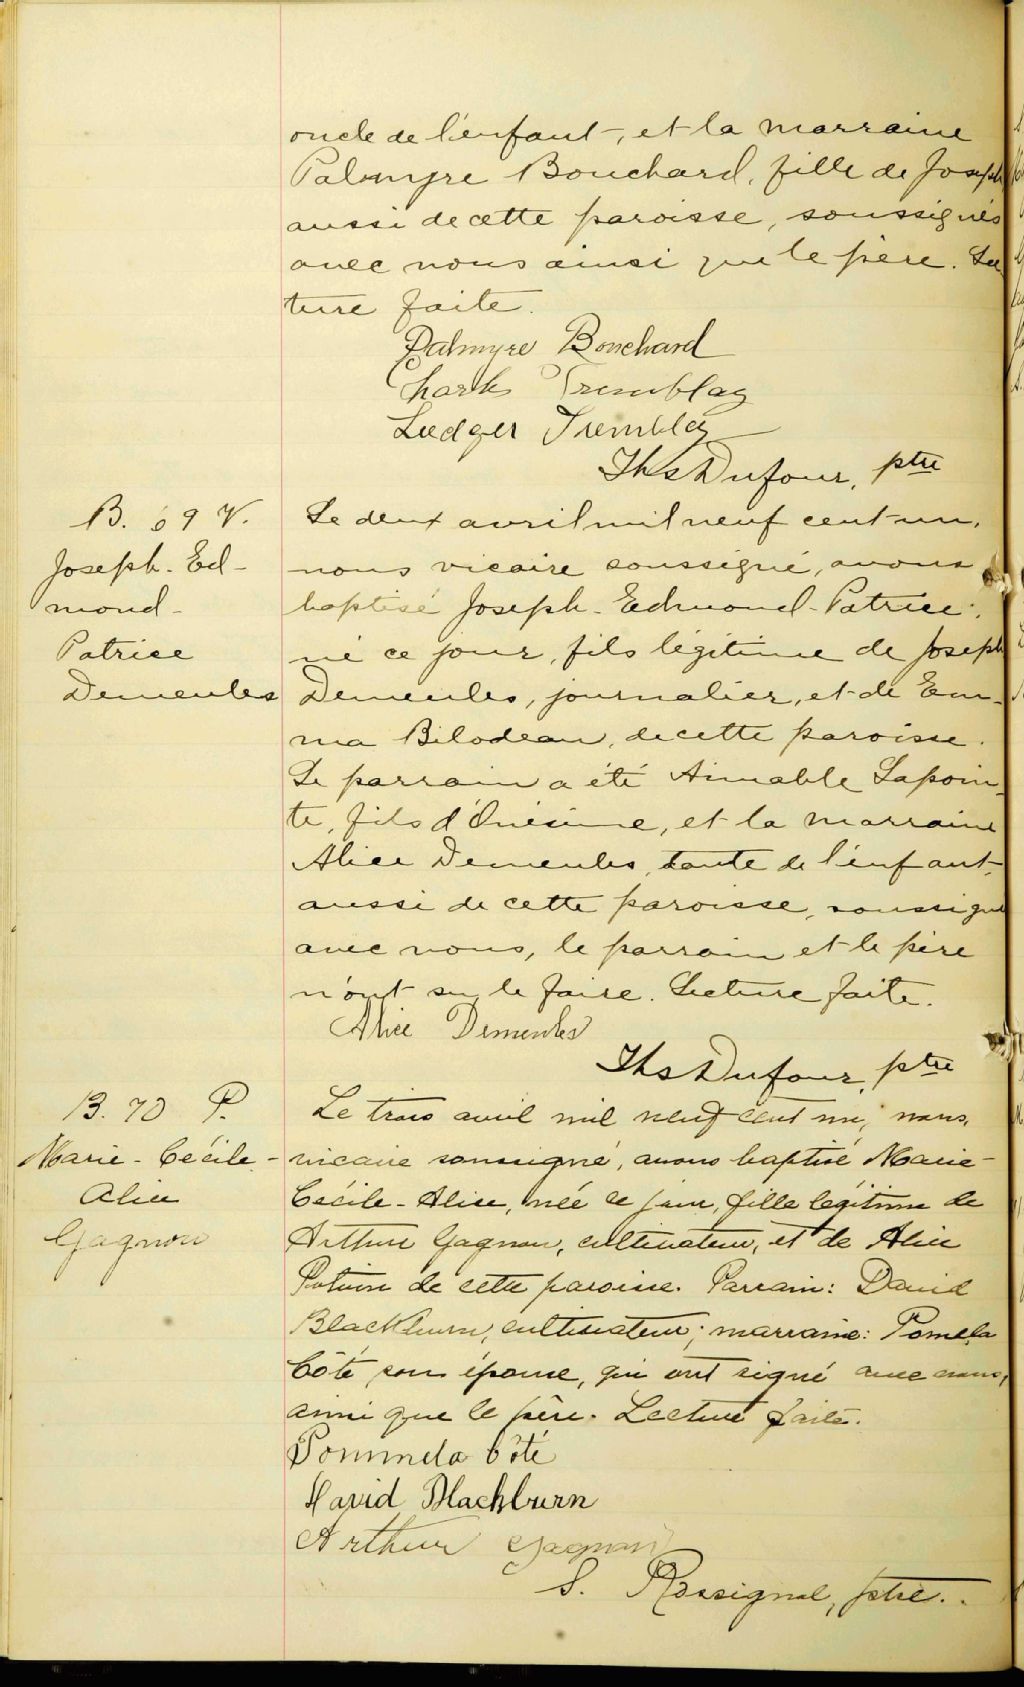 oncle de l'enfant, et la marraine
Palmyre Bouchard, fille de Joseph
aussi de cette paroisse, soussignés
avec nous ainsi que le père. Lec
ture faite.
Palmyre Bouchard
Charles Tremblay
Ludger Tremblay
Ths Dufour, ptre
B. 69 V.
Joseph-Ed-
mond-
Patrice
Demeules
Le deux avril mil neuf cent-un,
nous vicaire soussigné, avons
baptisé Joseph-Edmond-Patrice,
né ce jour, fils légitime de Joseph
Demeules, journalier, et de Em-
ma Bilodeau, de cette paroisse.
Le parrain a été Aimable Lapoin-
te, fils d'Onésime, et la marraine
Alice Demeules, tante de l'enfant,
aussi de cette paroisse, soussignée
avec nous, le parrain et le père
n'ont su le faire. Lecture faite.
Alice Demeules
Ths Dufour, ptre
B. 70 P.
Marie-Cécile-
Alice
Gagnon
Le trois avril mil neuf cent un, nous,
vicaire soussigné, avons baptisé Marie-
Cécile-Alice, née ce jour, fille légitime de
Arthur Gagnon, cultivateur, et de Alice
Potvin de cette paroisse. Parrain: David
Blackburn, cultivateur; marraine: Pomela
Côté son épouse, qui ont signé avec nous,
ainsi que le père. Lecture faite.
Pommela Côté
David Blackburn
Arthur Gagnon
S. Rossignol, ptre.